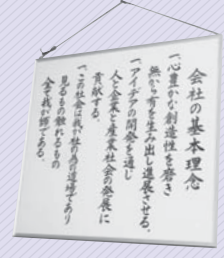 会社の基本理念
一、心豊かな創造性を磨き
無から有を生み出し進展させる。
一、アイデアの開発を通じ
人と企業と産業社会の発展に
貢献する。
一、この社会は我が社の為の道場であり
見るもの触れるもの
全て我が師である。